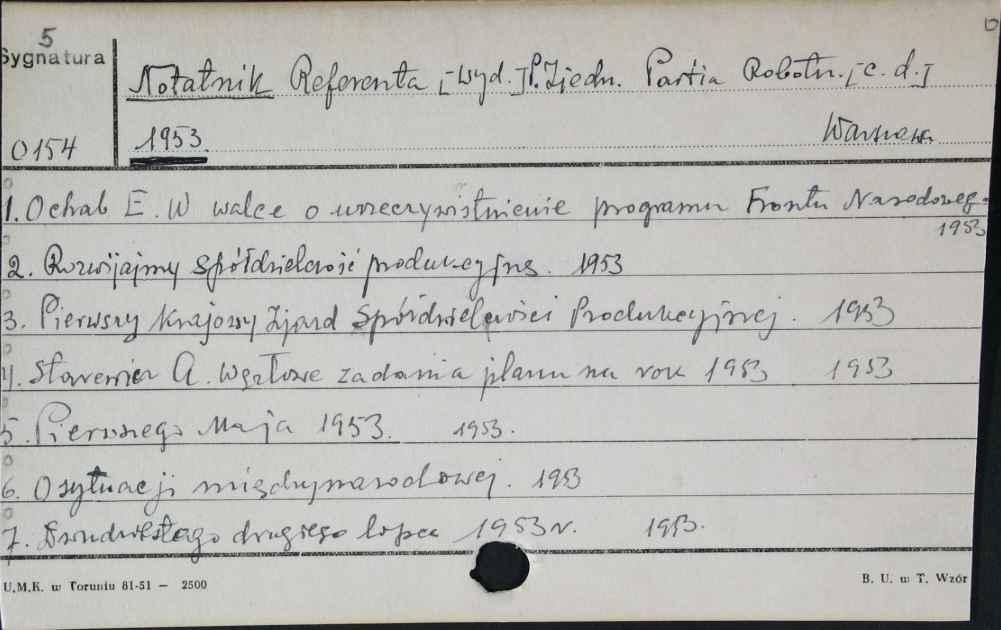 5
Sygnatura
Notatnik Referenta [wyd.] P. Zjedn. Partia Robotn. [c. d.]
O154 1953 Warszawa
1. Ochab E. W walce o urzeczywistnienie programu Frontu Narodoweg-
1953
2. Rozwijajmy spółdzielczość produkcyjną. 1953
3. Pierwszy Krajowy Zjazd Spółdzielczości Produkcyjnej. 1953
4. Starewicz A. Węzłowe zadania planu na rok 1953 1953
5. Pierwszego Maja 1953. 1953.
6. O sytuacji międzynarodowej. 1953
7. Dwudziestego drugiego lipca 1953 r. 1953.
U.M.K. w Toruniu 81-51 — 2500 B. U. w T. Wzór